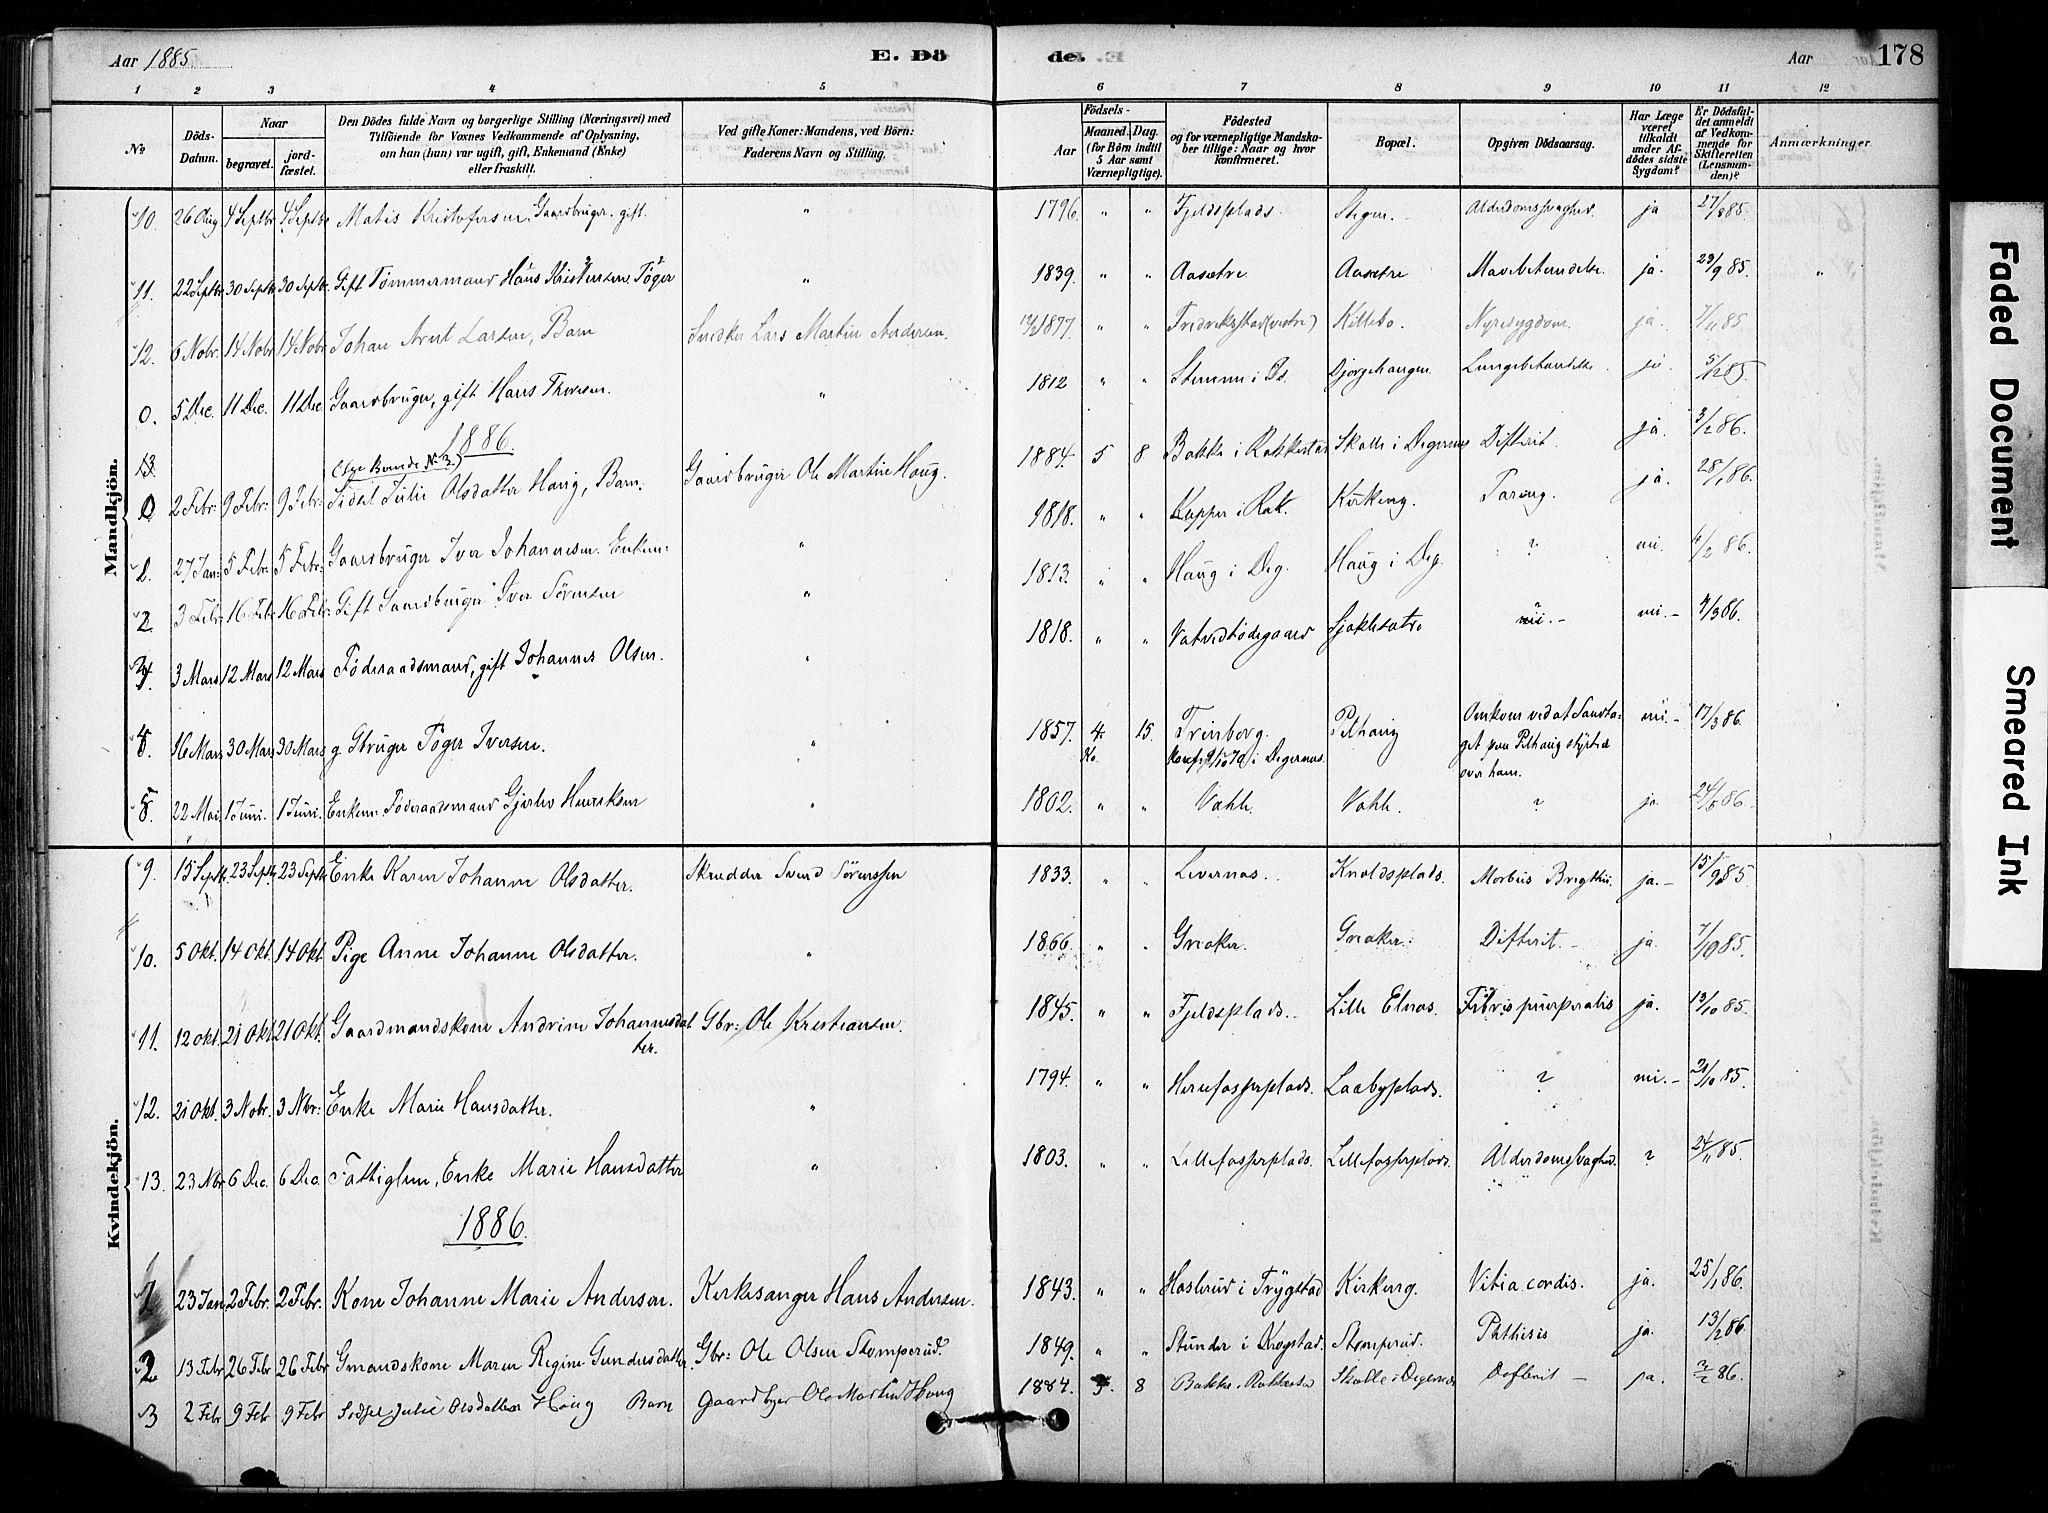 Aar 1885.
E. Dö
de.
Aar
178
1 2 3 4 5 6 7 8 9 10 11 12
No
Döds-Datum.
Naar
begravet.
jord-fæstet.
Den Dödes fulde Navn og borgerlige Stilling (Næringsvei) med
Tilföiende for Voxnes Vedkommende af Oplysning,
om han (hun) var ugift, gift, Enkemand (Enke)
eller fraskilt.
Ved gifte Koner: Mandens, ved Börn:
Faderens Navn og Stilling.
Födsels-
Aar
Maaned. Dag.
(for Börn indtil
5 Aar samt
Værnepligtige).
Födested
og for værnepligtige Mandska-
ber tillige: Naar og hvor
konfirmeret.
Bopæl.
Opgiven Dödsaarsag.
Har Læge
været
tilkaldt
under Af-
dödes sidste
Sygdom?
Er Dödsfal-
det anmeldt
af Vedkom-
mende for
Skifteretten
(Lensman-
den)?
Anmærkninger
Mandkjön.
10. 26 Aug 4 Septbr 4 Septbr Matis Kristofersen Gaardbruger. gift. " 1796. " " Fjeldsplads. Stegen. Alderdomssvaghed. ja 27/8 85.
11. 22 Septbr 30 Septbr 30 Septbr. Gift Tömmermand Hans Kristensen Töger " 1839. " " Aasetre Aasetre Mavebetendelse. ja. 23/9 85. "
12. 6 Nobr. 14 Nobr 14 Nobr Johan Arnt Larsen, Barn Snedker Lars Martin Andersen. 1877. " " Fredrikstad (vestre) Killebo. Nyresygdom. ja. 7/11 85.
0. 5 Dec. 11 Dec. 11 Dec. Gaardbruger, gift Hans Thoresen. " 1812 " " Lungebetendelse. ja 5/12 85.
1886.
13
0 2 Febr: 9 Febr: 9 Febr: Sidsel Julie Olsdatter Haug, Barn. Gaardbruger Ole Martin Haug. 1884. 5 8 Bakke i Rakkestad Skolle i Degernes Difterit. ja. 3/2 86.
27 Jan: 5 Febr: 5 Febr: Gaardbruger Iver Johannesen. Enkem: " 1818. " " Kopper i Rak. Kirkeng. Tæring. ja. 28/1 86.
2 3 Febr: 16 Febr 16 Febr: Gift Gaardbruger Iver Sörensen " 1813. " " Haug i Deg. Haug i Deg. ? nei. 4/2 86.
3 Mars 12 Mars 12 Mars Föderaadsmand, gift Johannes Olsen. " 1818. " " Vatvedtödegaard ? nei. 4/3 86.
16 Mars 30 Mars 30 Mars g. Gbruger Töger Iversen. " 1857. 4 15. Trinborg. Pilhaug Omkom ved at Sandta- nei. 17/3 86.
i Degernes. get paa Pilhaug styrtede
over ham.
5. 22 Mai. 1 Juni. 1 Juni. Enkem: Föderaadsmand Gjerlov Henriksen " 1802. " " Vahle. Vahle. ? ja 24/5 86.
Kvindekjön.
9. 15 Septbr. 23 Septbr 23 Septbr Enke Karen Johanne Olsdatter. Skredder Svend Sörenssen 1833. " " Levernes. Knoldsplads. Morbus Brigthii. ja. 15/9 85.
10. 5 Okt. 14 Okt. 14 Okt. Pige Anne Johanne Olsdatter. " 1866. " " Greaker. Greaker. Difterit. ja. 7/10 85.
11. 12 Okt. 21 Okt 21 Okt. Gaardmandskone Andrine Johannesdat Gbr: Ole Kristiansen. 1845. " " Fjeldsplads. Lille Elnes. Febris puerperalis ja. 13/10 85.
ter.
12. 21 Okt. 3 Nobr. 3 Nbr: Enke Marie Hansdatter. " 1794. " " Herrefosserplads. Laabyplads. ? nei. 21/10 85.
13. 23 Nbr 6 Dec. 6 Dec. Fattiglem, Enke Marie Hansdatter " 1803. " " Lillefosserplads. Lillefosserplads. Alderdomssvaghed. ? 24/11 85.
1886.
1 23 Jan 2 Febr. 2 Febr. Kone Johanne Marie Andersen. Kirkesanger Hans Andersen. 1843. " " Haslerud i Trygstad Kirkeng. Vitia cordis. ja. 25/1 86.
2 13 Febr 26 Febr 26 Febr Gmandskone Maren Regine Gundersdatter. Gbr: Ole Olsen Stomperud. 1849. " " Stunder i Krogstad. Stomperud. Phthisis ja. 13/2 86.
3 2 Febr 9 Febr 9 Febr Sidsel Julie Olsdatter Haug Barn Gaardbruger Ole Martin Haug 1884. 5. 8 Bakke i Rakkestad Skolle i Degernes Difterit ja. 3/2 86.
Faded Document
Smeared Ink